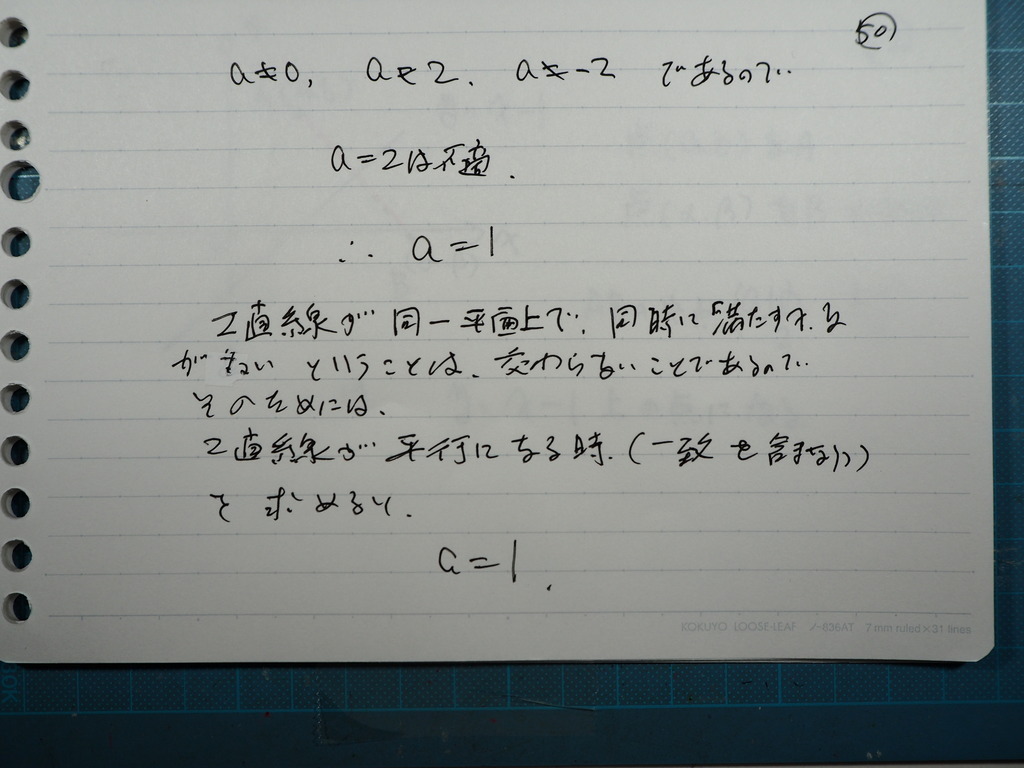 50
a≠0, a≠2, a≠-2 であるので
a=2は不適.
∴ a=1
2直線が同一平面上で、同時に満たす
がない ということは、交わらないことであるので
そのためには、
2直線が平行になる時.(一致を含まない)
を 求めると.
a=1.
KOKUYO LOOSE-LEAF ノ-836AT 7 mm ruled×31 lines